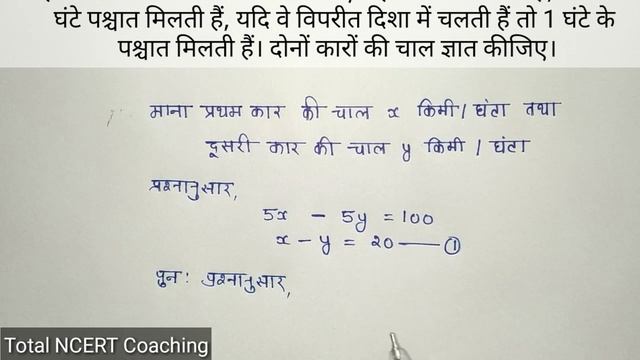 घंटे पश्चात मिलती हैं, यदि वे विपरीत दिशा में चलती हैं तो 1 घंटे के
पश्चात मिलती हैं। दोनों कारों की चाल ज्ञात कीजिए।
माना प्रथम कार की चाल x किमी / घंटा तथा
दूसरी कार की चाल y किमी / घंटा
प्रश्नानुसार,
5x - 5y = 100
x - y = 20 —— ①
पुनः प्रश्नानुसार,
Total NCERT Coaching